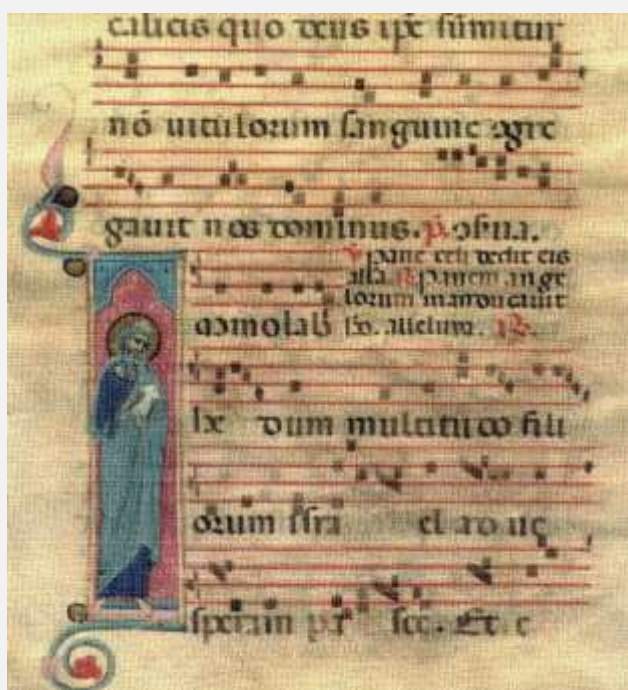 calicis quo deus ip̄e sumitur
nō uitulorum sanguine ꝯgre
gauit nos dominus. p̄.
V pane celi dedit eis
alla. R panem ange
lorum manducauit
Immolab ho. alleluia. R.
dum multitudo fili
orum isra el ad ue
speram pa sce. Et e